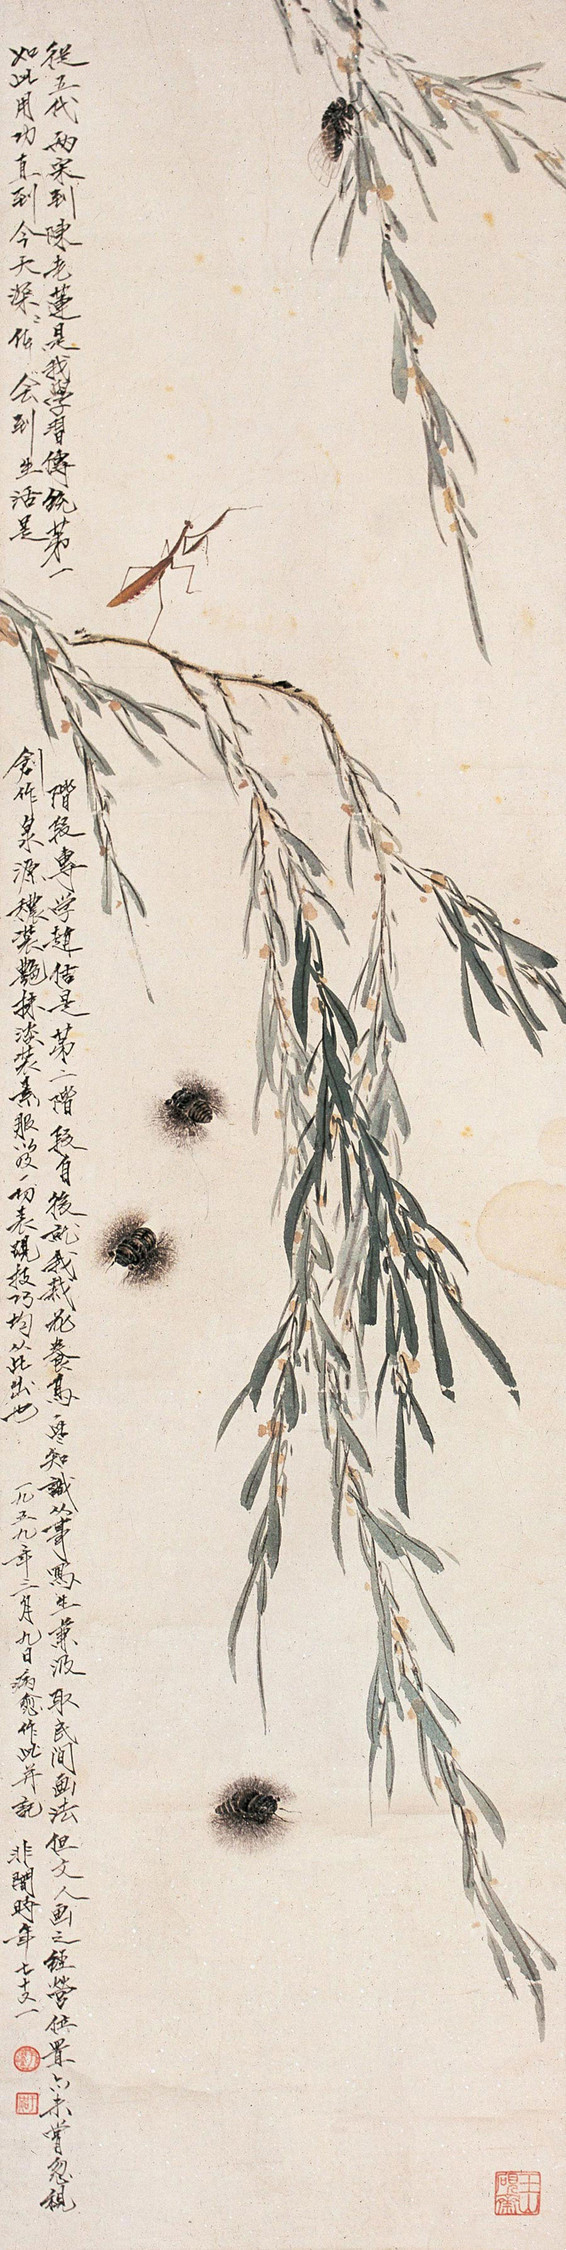 從五代兩宋到陳老蓮是我學習傳統第一階段專学趙佶是第二階段自後就我栽花養鳥所知識从事寫生兼汲取民間画法但文人画之經營位置亦未嘗忽視
如此用功直到今天深〻体会到生活是創作泉源穠裝艷抹淡裝素服以及一切表現技巧均从此出也 一九五九年三月九日病愈作此并記 非闇時年七十又一
玉山硯齋